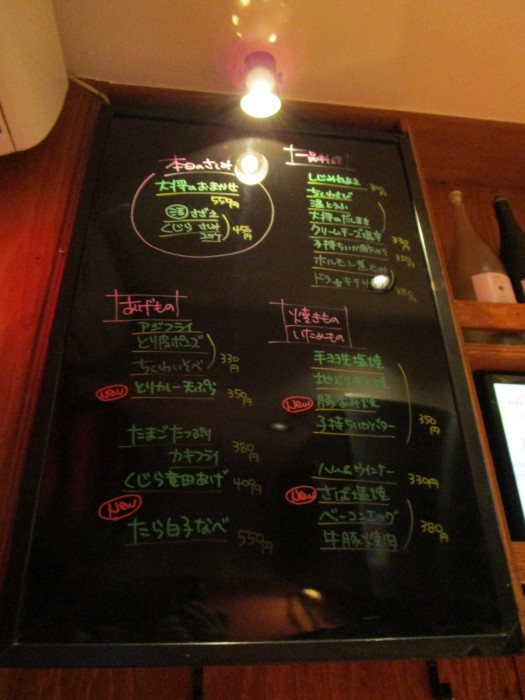 本日のさしみ
大将のおまかせ
550円
活 さざえ
くじら さしみ
450円
一品料理
ちくわさび
温とうふ
大将のだしまき
クリームチーズ塩辛
330円
ホルモン煮
あげもの
アジフライ
とり皮ポンズ
ちくわいそべ
330円
New とりカレー天ぷら 350円
たまごたっぷり
カキフライ
380円
くじら竜田あげ 400円
New
たら白子なべ 550円
焼きもの
いためもの
手羽先塩焼
地どり
New 豚
子持ちいかバター
350円
ハム&ウインナー 330円
New さば塩焼
ベーコンエッグ
牛豚焼肉
380円